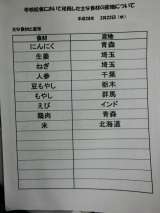 学校給食において使用した主な食材の産地について
平成28年 2月23日（火）
主な食材と産地
食材 産地
にんにく 青森
生姜 埼玉
ねぎ 埼玉
人参 千葉
豆もやし 栃木
もやし 群馬
えび インド
鶏肉 青森
米 北海道